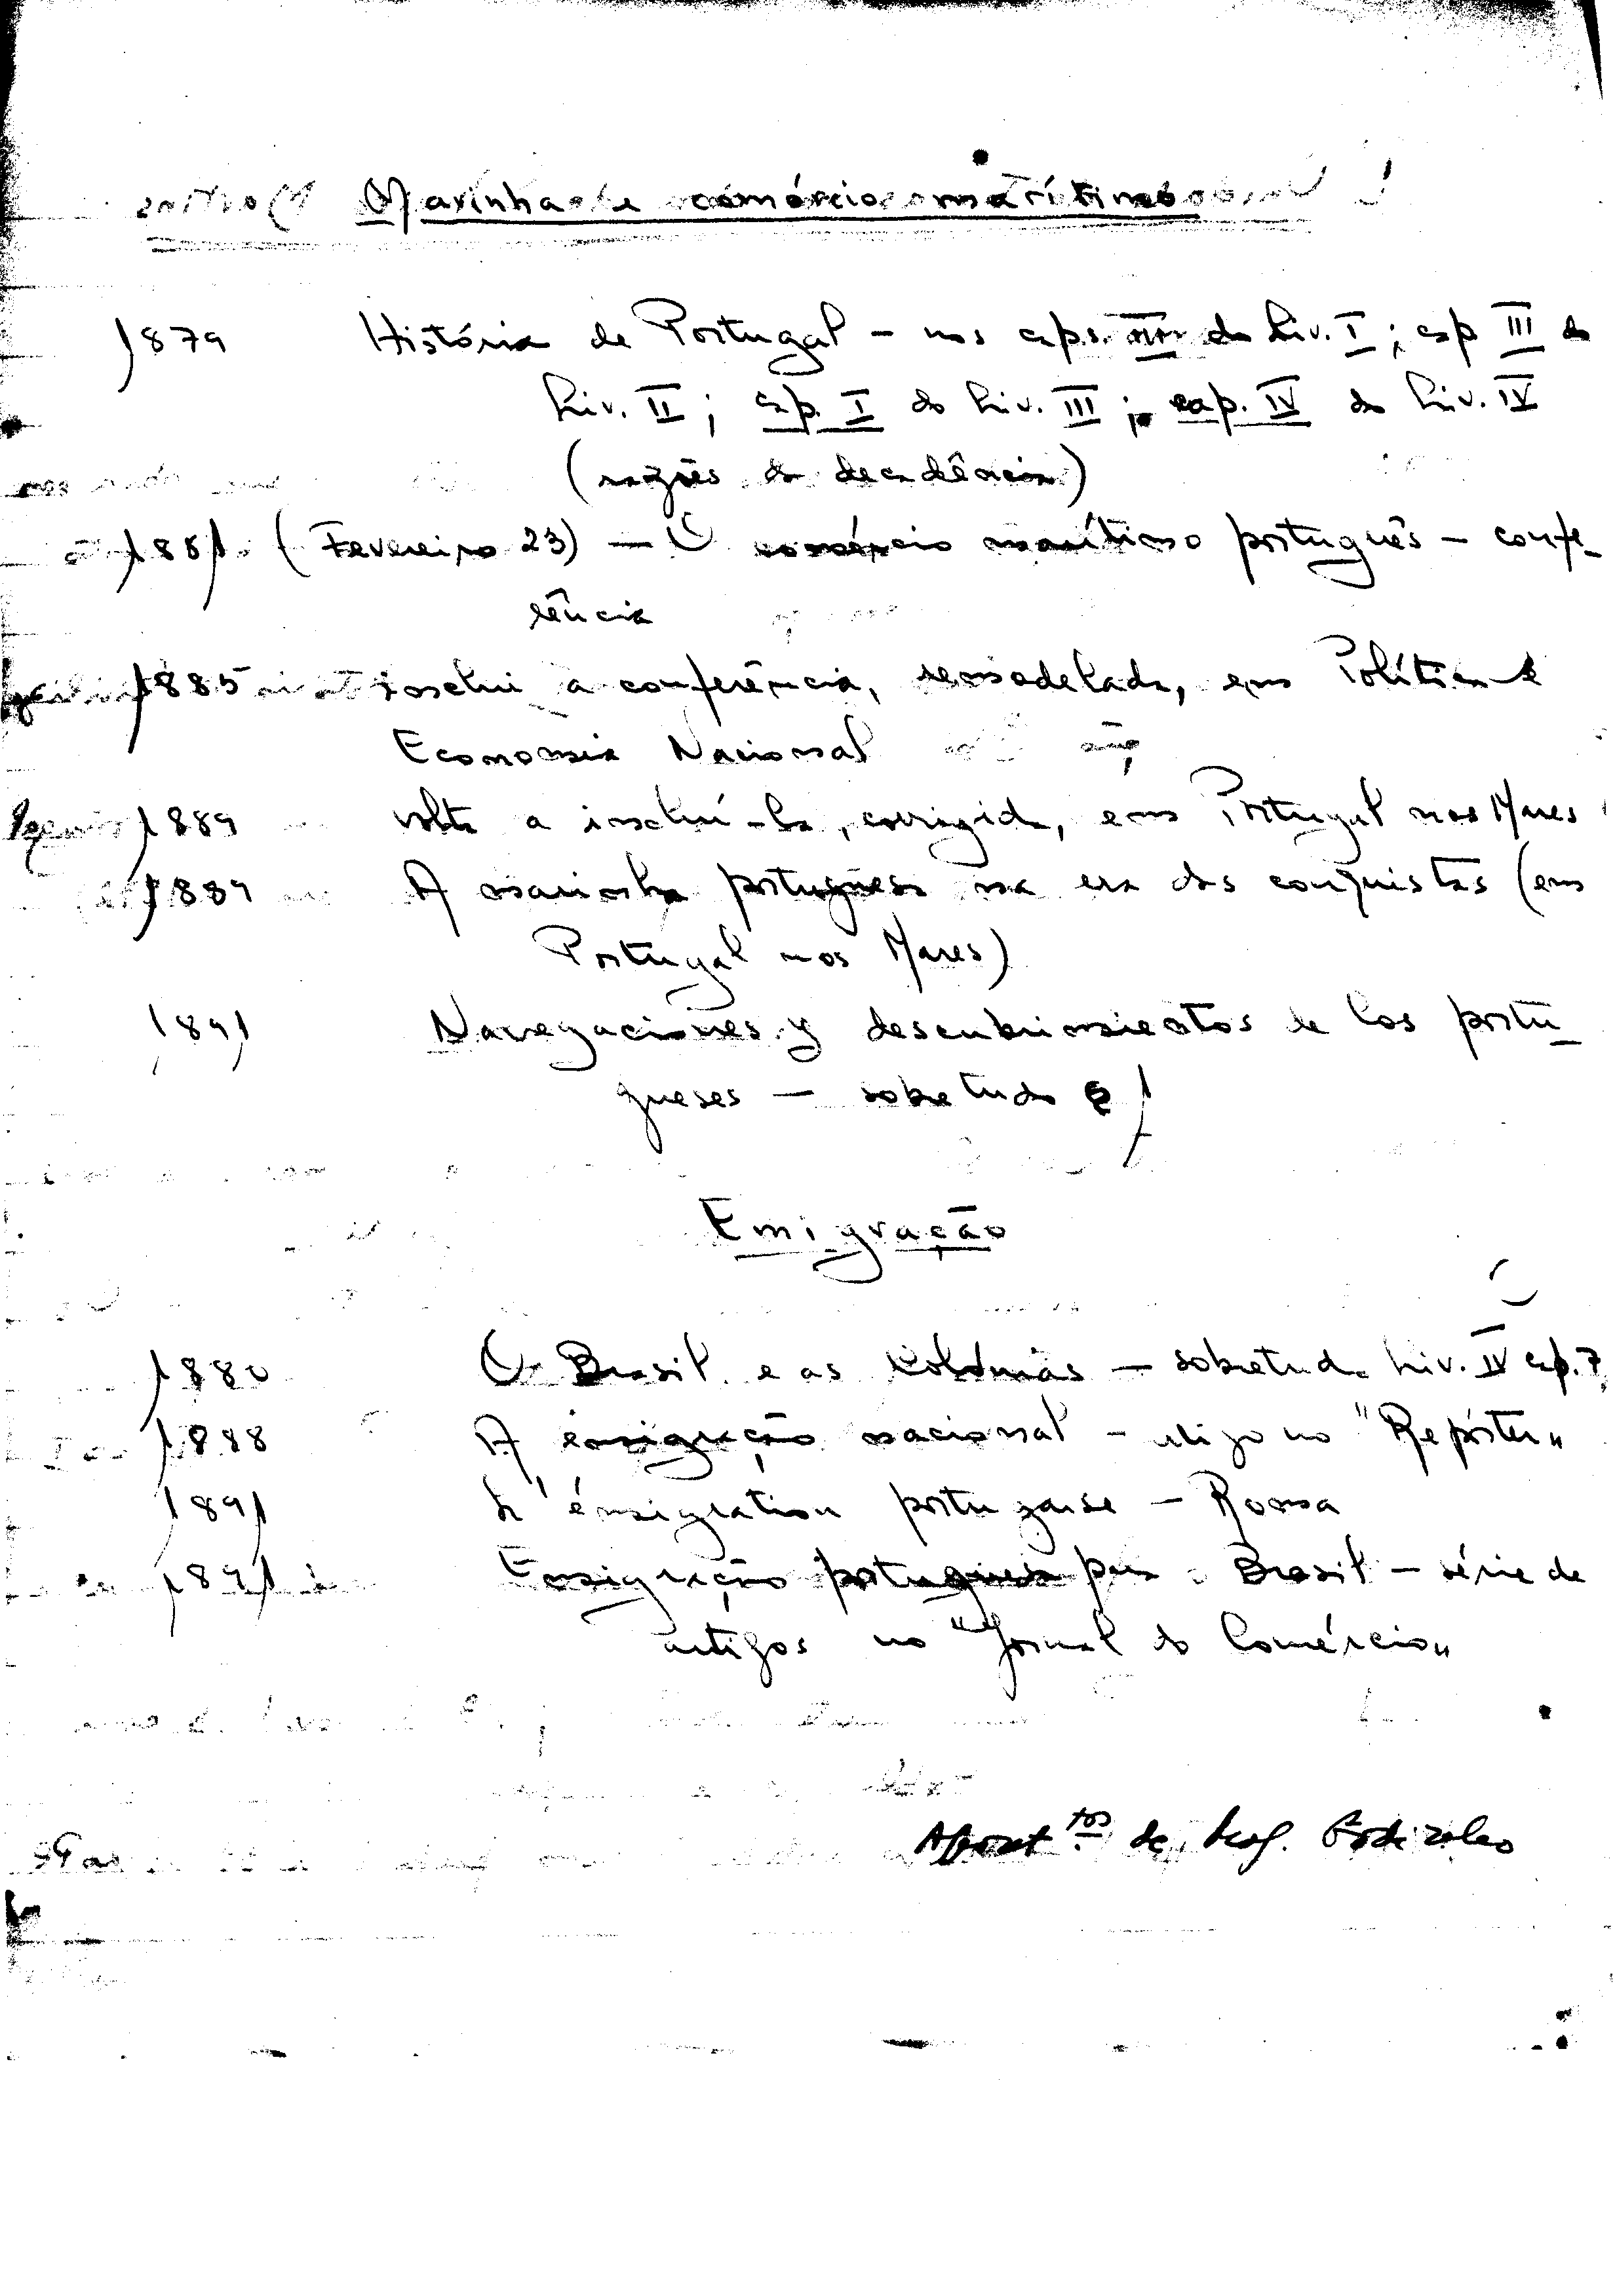 Marinha de comércio marítimo
1879 História de Portugal - nos caps. do Liv. I; cap III do
Liv. II; cap. I do Liv. III; cap. IV do Liv. IV
(razões da decadência)
1881 (Fevereiro 23) — O comércio marítimo português - confe-
rência
1885 inclui a conferência, remodelada, em Política e
Economia Nacional
1889 volta a incluí-la, corrigida, em Portugal nos Mares
1889 A marinha portuguesa na era das conquistas (em
Portugal nos Mares)
1891 Navegaciones y descubrimientos de los portu-
gueses — sobretudo
Emigração
1880 O Brasil e as Colónias — sobretudo Liv. IV cap. 7
1888 A emigração nacional - artigo no "Repórter"
1891 L'émigration portugaise - Roma
1891 Emigração portuguesa para o Brasil - série de
artigos no "Jornal do Comércio"
Apont.tos de